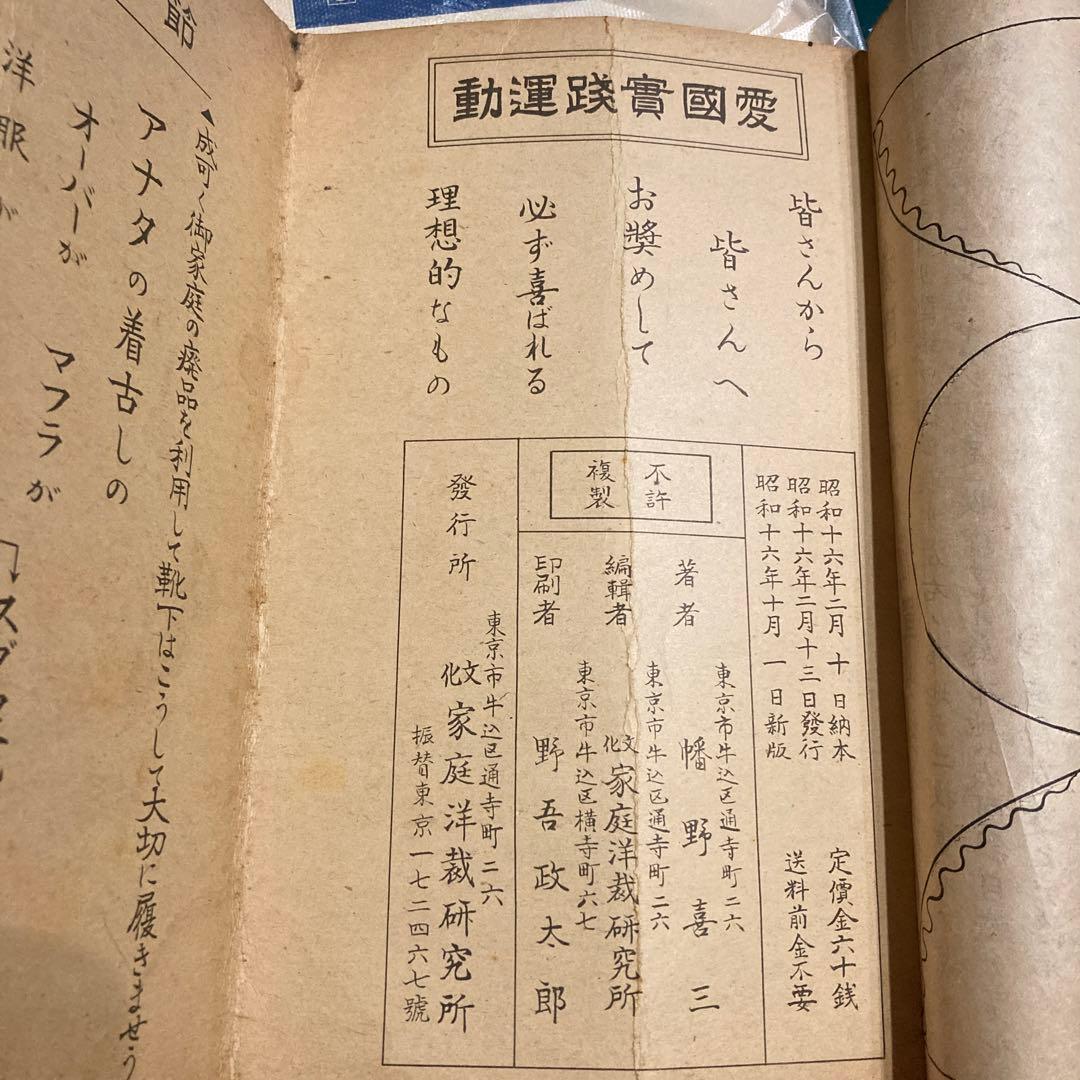 愛國實踐運動
皆さんから
皆さんへ
お奬めして
必ず喜ばれる
理想的なもの
昭和十六年二月十日納本
昭和十六年二月十三日發行
昭和十六年十月一日新版
定價金六十銭
送料前金不要
不許
複製
著者
東京市牛込区通寺町二六
幡野喜三
編輯者
東京市牛込区通寺町二六
文化家庭洋裁研究所
印刷者
東京市牛込区横寺町六七
野吾政太郎
發行所
東京市牛込区通寺町二六
文化家庭洋裁研究所
振替東京一七二四六七號
◀成可く御家庭の廢品を利用して靴下はこうして大切に履きませう
アナタの着古しの
オーバーが
マフラが
洋服が